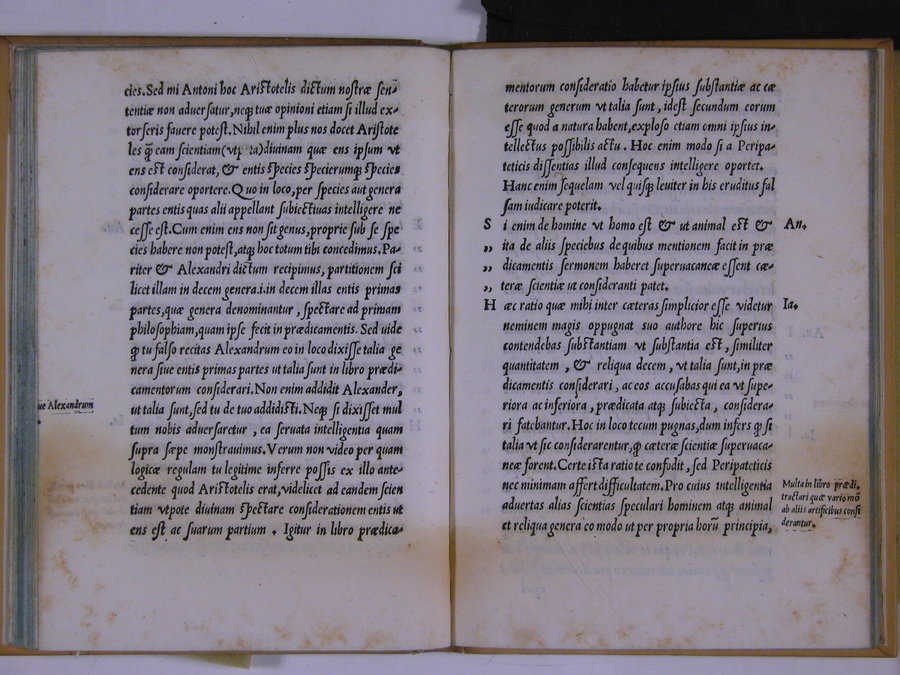 cies. Sed mi Antoni hoc Aristotelis dictum nostræ sen-
tentiæ non aduersatur, neq; tuæ opinioni etiam si illud ex-
torseris fauere potest. Nihil enim plus nos docet Aristote
les q̃ eam scientiam (vtp ta) diuinam quæ ens ipsum vt
ens est considerat, & entis species specierumq; species
considerare oportere. Quo in loco, per species aut genera
partes entis quas alii appellant subiectiuas intelligere ne
cesse est. Cum enim ens non sit genus, proprie sub se spe
cies habere non potest, atq; hoc totum tibi concedimus. Pa-
riter & Alexandri dictum recipimus, partitionem sci
licet illam in decem genera .i. in decem illas entis primas
partes, quæ genera denominantur, spectare ad primam
philosophiam, quam ipse fecit in prædicamentis. Sed uide
q̃ tu falso recitas Alexandrum eo in loco dixisse talia ge
nera siue entis primas partes ut talia sunt in libro prædi-
camentorum considerari. Non enim addidit Alexander,
ue Alexandrum
ut talia sunt, sed tu de tuo addidisti. Neq; si dixisset mul
tum nobis aduersaretur, ea seruata intelligentia quam
supra sæpe monstrauimus. Verum non video per quam
logicæ regulam tu legitime inferre possis ex illo ante-
cedente quod Aristotelis erat, videlicet ad eandem scien
tiam vtpote diuinam spectare considerationem entis ut
ens est ac suarum partium. Igitur in libro prædica-
mentorum consideratio habetur ipsius substantiæ ac cæ
terorum generum vt talia sunt, idest secundum eorum
esse quod a natura habent, exploso etiam omni ipsius in-
tellectus possibilis actu. Hoc enim modo si a Peripa-
teticis dissentias illud consequens intelligere oportet.
Hanc enim sequelam vel quisq; leuiter in his eruditus fal
sam iudicare poterit.
S i enim de homine vt homo est & ut animal est & An.
„ ita de aliis speciebus de quibus mentionem facit in præ
„ dicamentis sermonem haberet superuacaneæ essent cæ-
„ teræ scientiæ ut consideranti patet.
H æc ratio quæ mihi inter cæteras simplicior esse videtur Ia.
neminem magis oppugnat suo authore hic superius
contendebas substantiam vt substantia est, similiter
quantitatem, & reliqua decem, vt talia sunt, in præ
dicamentis considerari, ac eos accusabas qui ea vt supe-
riora ac inferiora, prædicata atq; subiecta, considera-
ri fatebantur. Hoc in loco tecum pugnas, dum infers q̃ si
talia vt sic considerarentur, q̃ cæteræ scientiæ superuaca-
neæ forent. Certe ista ratio te confodit, sed Peripateticis
nec minimam affert difficultatem. Pro cuius intelligentia
aduertas alias scientias speculari hominem atq; animal
et reliqua genera eo modo ut per propria horũ principia,
Multa in libro prædi.
tractari quæ vario mõ
ab aliis artificibus consi
derantur.